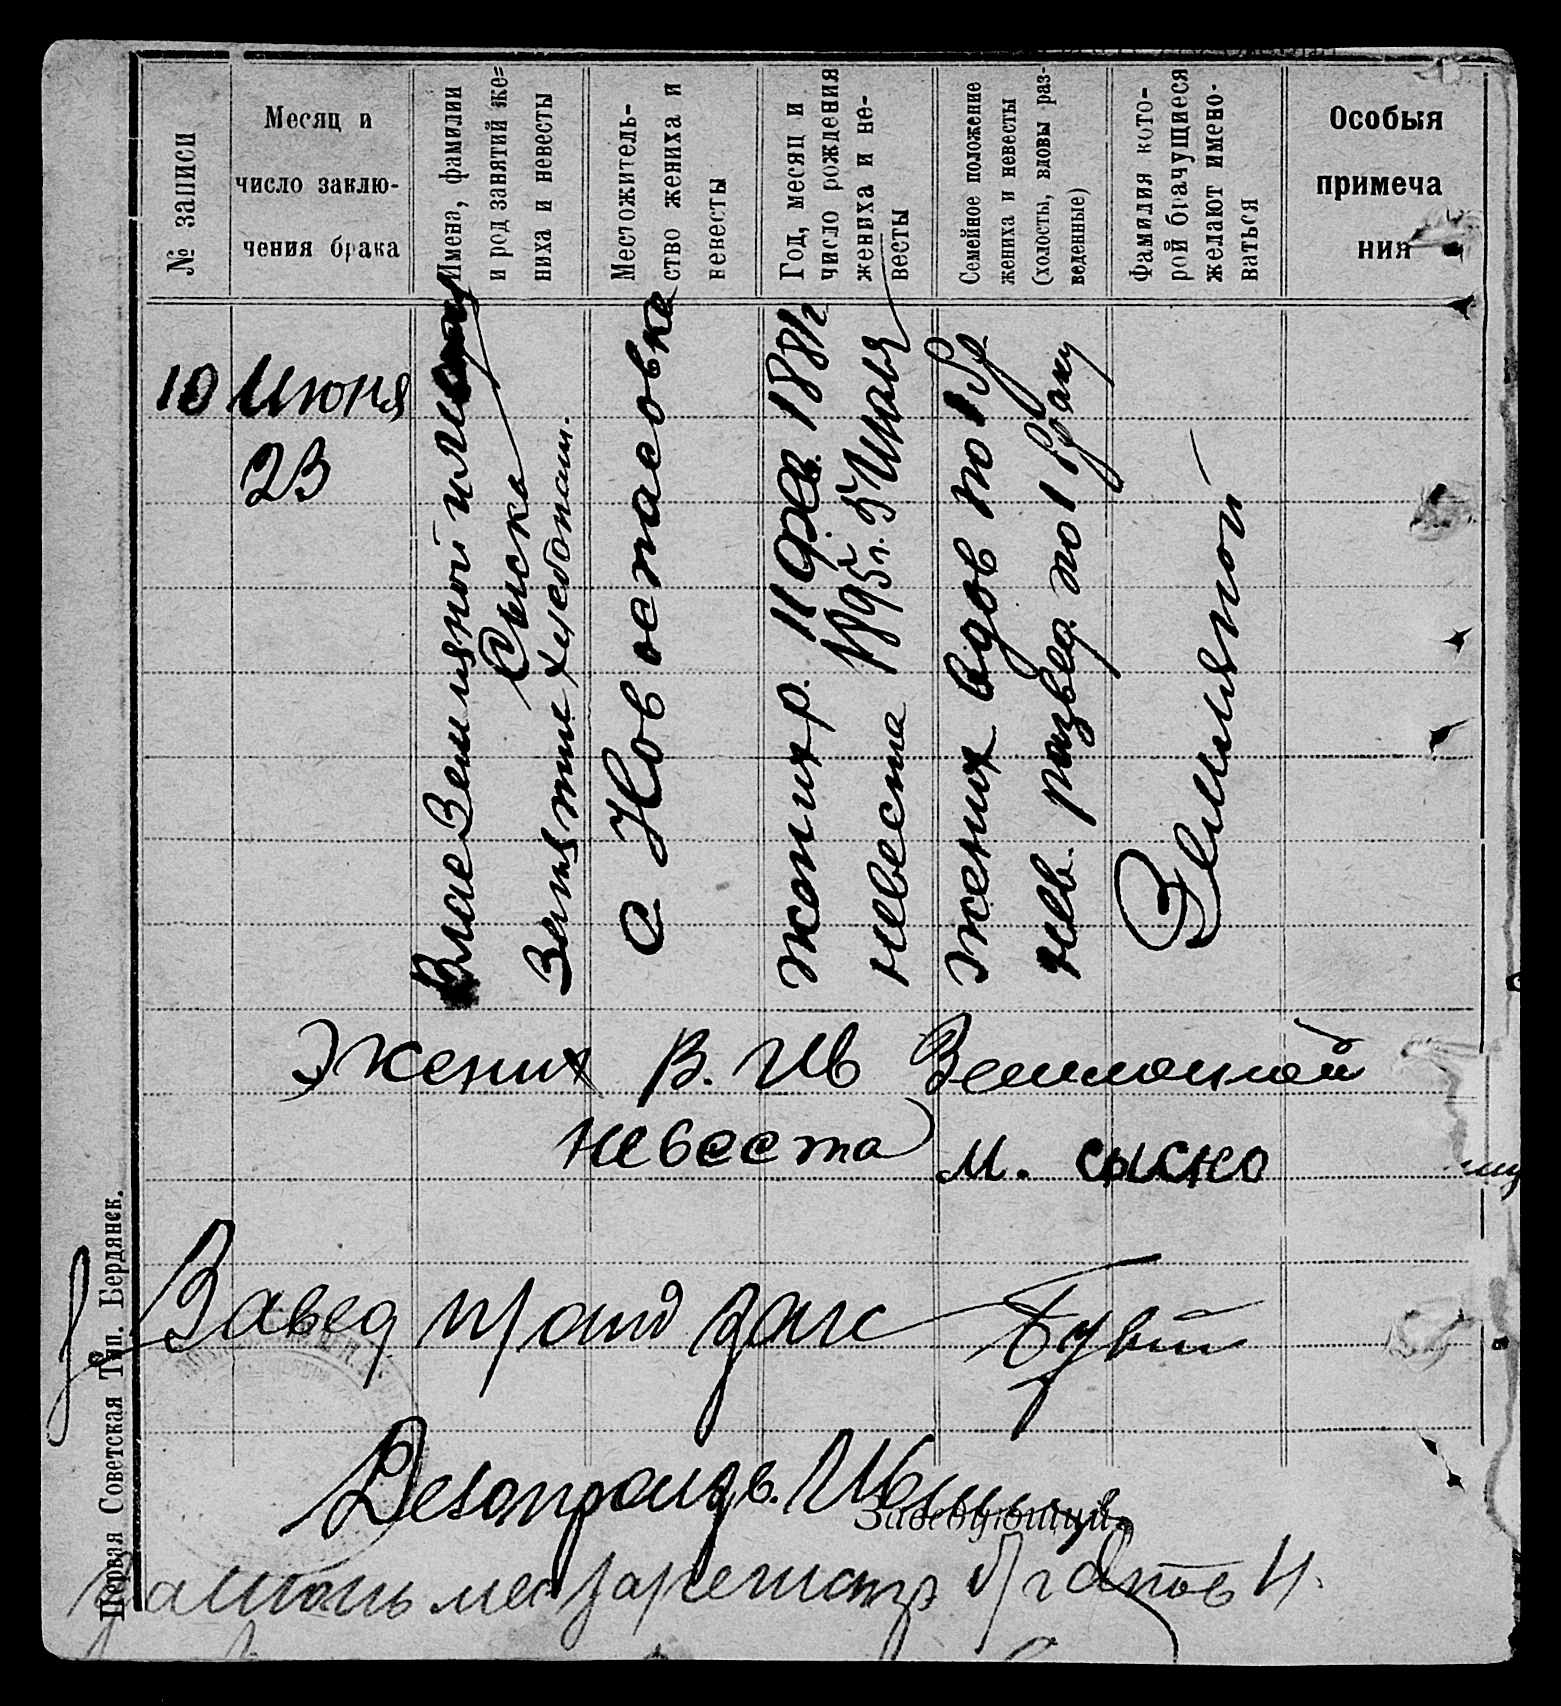 № записи
Месяц и
число заклю-
чения брака
Имена, фамилии
и род занятий же=
ниха и невесты
Местожитель-
ство жениха и
невесты
Год, месяц и
число рождения
жениха и не-
весты
Семейное положение
жениха и невесты
(холосты, вдовы раз-
веденные)
Фамилия кото-
рой брачущиеся
желают имено-
ваться
Особыя
примеча
ния
10
Июня
23
Влас Земляной и
Сыско
Занятие хлебопаш.
с Новоспасовка
жених р. 11 фев. 1881
невеста 1895 г. 5 Июля
жених вдов по 1 бр
нев. развед. по 1 браку
Земляной
Жених В. Ив Земляной
невеста М. сыско
Завед
Делопроизв.
Заведующий
Первая Советская Тип. Бердянск.